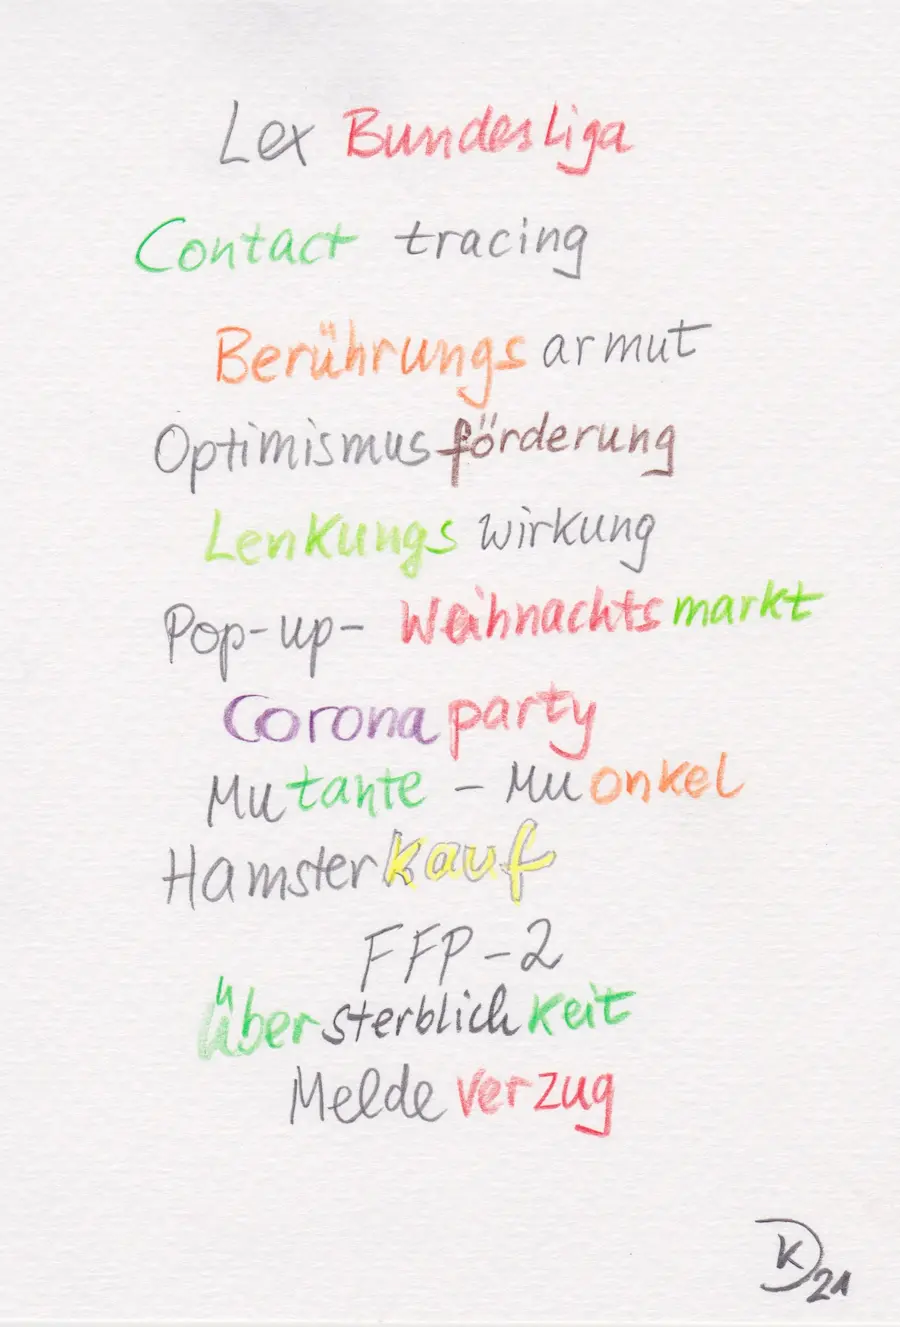 Lex Bundesliga
Contact tracing
Berührungsarmut
Optimismusförderung
Lenkungswirkung
Pop-up-Weihnachtsmarkt
Coronaparty
Mutante - Muonkel
Hamsterkauf
FFP-2
übersterblichkeit
Meldeverzug
DK 21